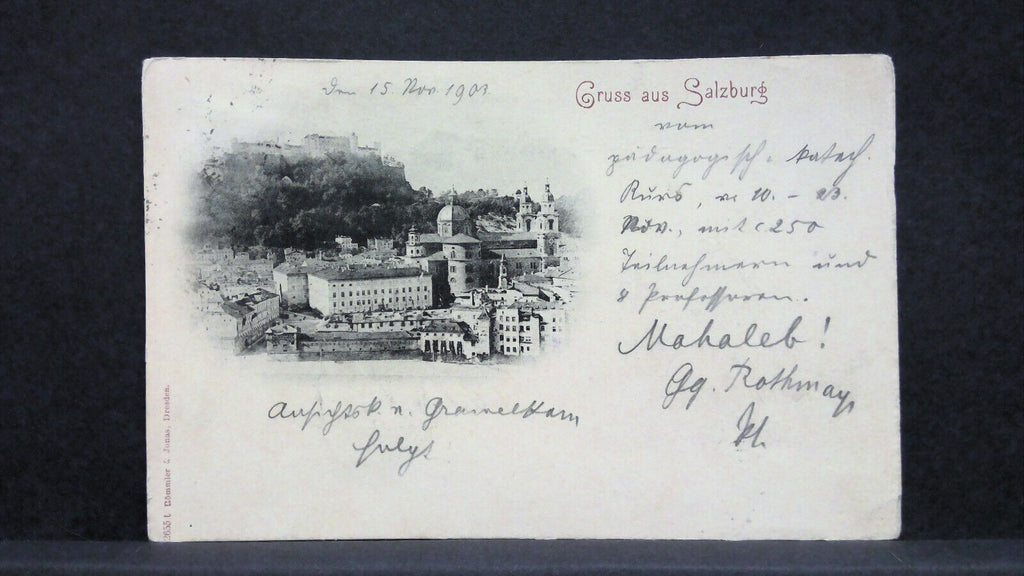 Den 15. Nov. 1903.
Gruss aus Salzburg
vom
pädagogisch. katech.
Kurs, v. 10. - 23.
Nov., mit c 250
Teilnehmern und
8 Professoren.
Mahaleb!
Gg. Rothmayr
Ansichtsk. v.
folgt
2655 l. Römmler & Jonas, Dresden.